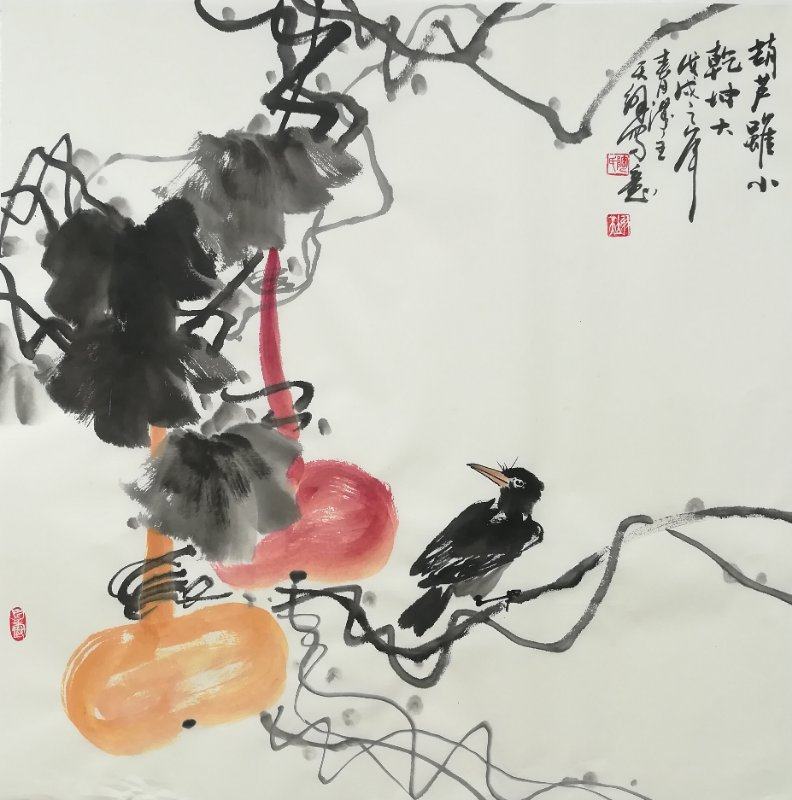 葫芦雖小
乾坤大
戊戌之年
春月
天翔寫意